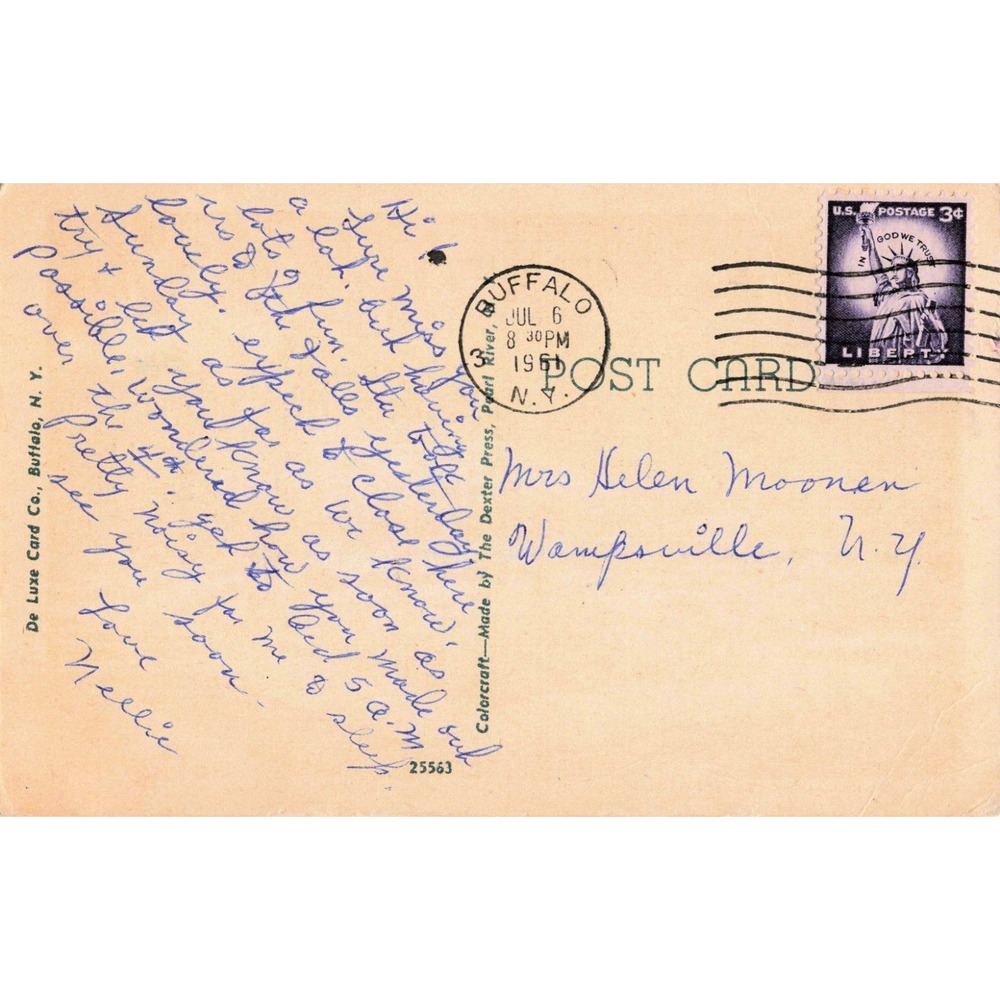 Hi!
Sure miss you
a lot, but having
lots of fun. Stu took
us to the Falls yesterday
lovely. expect to close here
Sunday as far as we know.
try & let you know as soon as
possible, wondered how you made out
over the 4th. get to bed 5 a.m
pretty noisy for me to sleep.
see you soon.
Love
Nellie
De Luxe Card Co., Buffalo, N. Y.
Colorcraft—Made by The Dexter Press, Pearl River, N. Y.
25563
BUFFALO
JUL 6
8 30 PM
1961
N.Y.
3
POST CARD
U.S. POSTAGE 3¢
IN GOD WE TRUST
LIBERTY
Mrs Helen Moonen
Wampsville, N.Y.